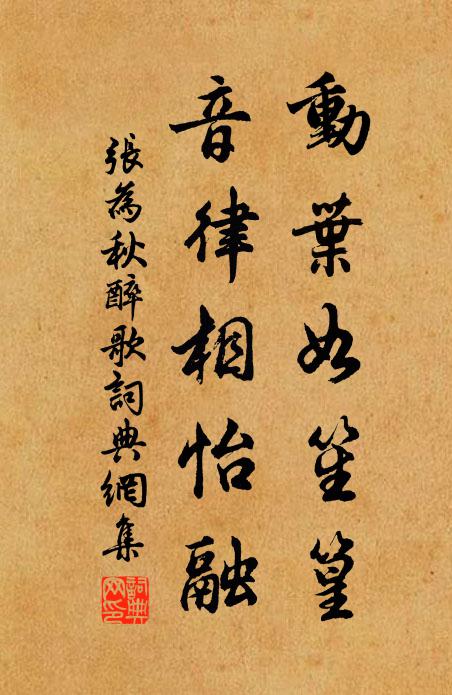 動葉如笙篁
音律相怡融
張為秋醉歌詞典網集
詞典網印